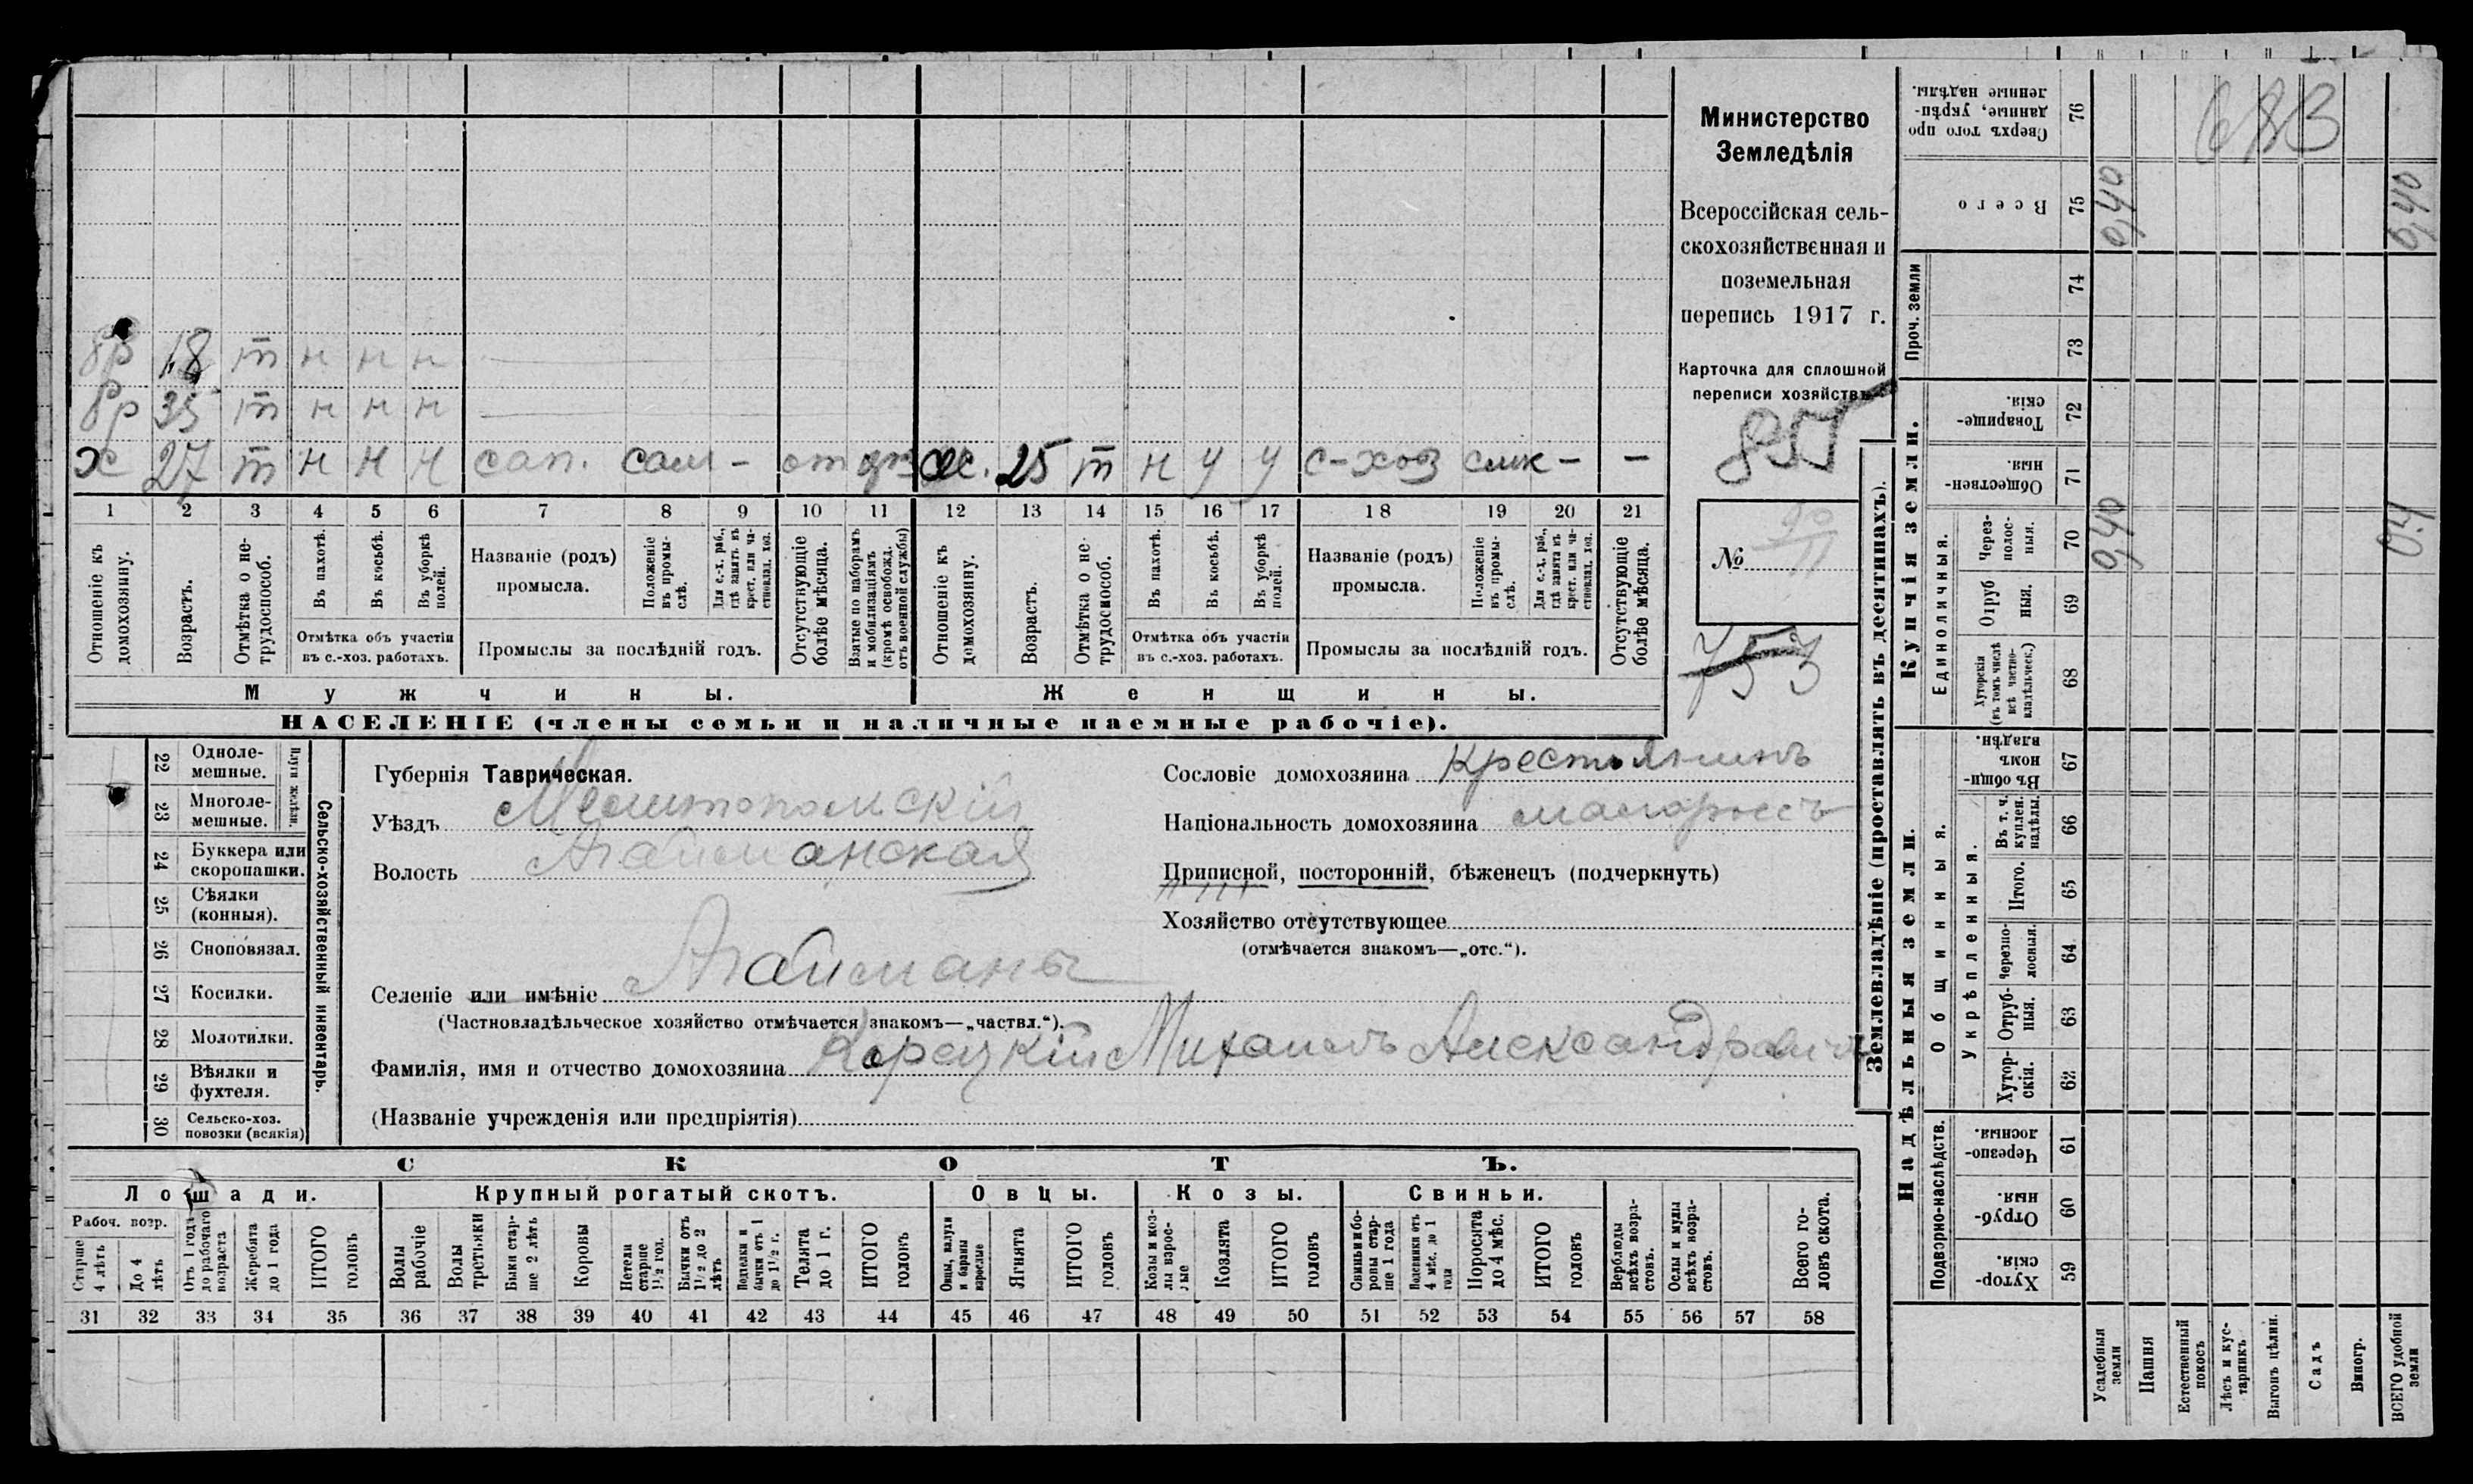 Министерство
Земледѣлія
Всероссійская сель-
скохозяйственная и
поземельная
перепись 1917 г.
Карточка для сплошной
переписи хозяйствъ
857
№ 90/11
753
бр 18 т н н н
бр 35 т н н н
х 27 т н н н сап. сам - от
ж. 25 т н у у с-хоз - -
1 2 3 4 5 6 7 8 9 10 11 12 13 14 15 16 17 18 19 20 21
Отношеніе къ домохозяину.
Возрастъ.
Отмѣтка о не-трудоспособ.
Въ пахотѣ.
Въ косьбѣ.
Въ уборкѣ полей.
Отмѣтка объ участіи
въ с.-хоз. работахъ.
Названіе (родъ)
промысла.
Положеніе въ промы-слѣ.
Для с.-х. раб., гдѣ занятъ въ крест. или ча-стновлад. хоз.
Промыслы за послѣдній годъ.
Отсутствующіе болѣе мѣсяца.
Взятые по наборамъ и мобилизаціямъ (кромѣ освобожд. отъ военной службы)
Отношеніе къ домохозяину.
Возрастъ.
Отмѣтка о не-трудоспособ.
Въ пахотѣ.
Въ косьбѣ.
Въ уборкѣ полей.
Отмѣтка объ участіи
въ с.-хоз. работахъ.
Названіе (родъ)
промысла.
Положеніе въ промы-слѣ.
Для с.-х. раб., гдѣ занята въ крест. или ча-стновлад. хоз.
Промыслы за послѣдній годъ.
Отсутствующіе болѣе мѣсяца.
Мужчины.
Женщины.
НАСЕЛЕНІЕ (члены семьи и наличные наемные рабочіе).
Сельско-хозяйственный инвентарь.
Плуги желѣзн.
22 Одноле-мешные.
23 Многоле-мешные.
24 Буккера или скоропашки.
25 Сѣялки (конныя).
26 Сноповязал.
27 Косилки.
28 Молотилки.
29 Вѣялки и фухтеля.
30 Сельско-хоз. повозки (всякія)
Губернія Таврическая.
Уѣздъ Мелитопольскій
Волость Агайманская
Селеніе или имѣніе Агайманы
(Частновладѣльческое хозяйство отмѣчается знакомъ—„частвл.“).
Фамилія, имя и отчество домохозяина Корецкій Михаилъ Александровичъ
(Названіе учрежденія или предпріятія)
Сословіе домохозяина крестьянинъ
Національность домохозяина малороссъ
Приписной, посторонній, бѣженецъ (подчеркнуть)
Хозяйство отсутствующее
(отмѣчается знакомъ—„отс.“).
СКОТЪ.
Лошади.
Крупный рогатый скотъ.
Овцы.
Козы.
Свиньи.
Рабоч. возр.
Старше 4 лѣтъ
До 4 лѣтъ
Отъ 1 года до рабочаго возраста
Жеребята до 1 года
ИТОГО головъ
Волы рабочіе
Волы третьяки
Быки стар-ше 2 лѣтъ
Коровы
Нетели старше 1½ год.
Бычки отъ 1½ до 2 лѣтъ
Подтелки и бычки отъ 1 до 1½ г.
Телята до 1 г.
ИТОГО головъ
Овцы, валухи и бараны взрослые
Ягнята
ИТОГО головъ
Козы и коз-лы взрос-лые
Козлята
ИТОГО головъ
Свиньи и бо-ровы стар-ше 1 года
Подсвинки отъ 4 мѣс. до 1 года
Поросята до 4 мѣс.
ИТОГО головъ
Верблюды всѣхъ возра-стовъ.
Ослы и мулы всѣхъ возра-стовъ.
Всего го-ловъ скота.
31 32 33 34 35 36 37 38 39 40 41 42 43 44 45 46 47 48 49 50 51 52 53 54 55 56 57 58
Землевладѣніе (проставлять въ десятинахъ).
Надѣльныя земли.
Подворно-наслѣдств.
Хутор-скія. 59
Отруб-ныя. 60
Черезпо-лосныя. 61
Общинныя.
Укрѣпленныя.
Хутор-скія. 62
Отруб-ныя. 63
Черезпо-лосныя. 64
Итого. 65
Въ т. ч. куплен. надѣлы. 66
Въ общин-номъ владѣн. 67
Купчія земли.
Единоличныя.
Хуторскія (въ томъ числѣ всѣ частно-владѣльческ.) 68
Отруб ныя. 69
Через-полос-ныя. 70 0,40 0,4
Обществен-ныя. 71
Товарище-скія. 72
Проч. земли
73
74
Всего 75 0,40 0,40
Сверхъ того про данные, укрѣп-ленные надѣлы. 76
Усадебныя земли
Пашня
Естественный покосъ
Лѣсъ и кус-тарникъ
Выгонъ цѣлин.
Садъ
Виногр.
ВСЕГО удобной земли